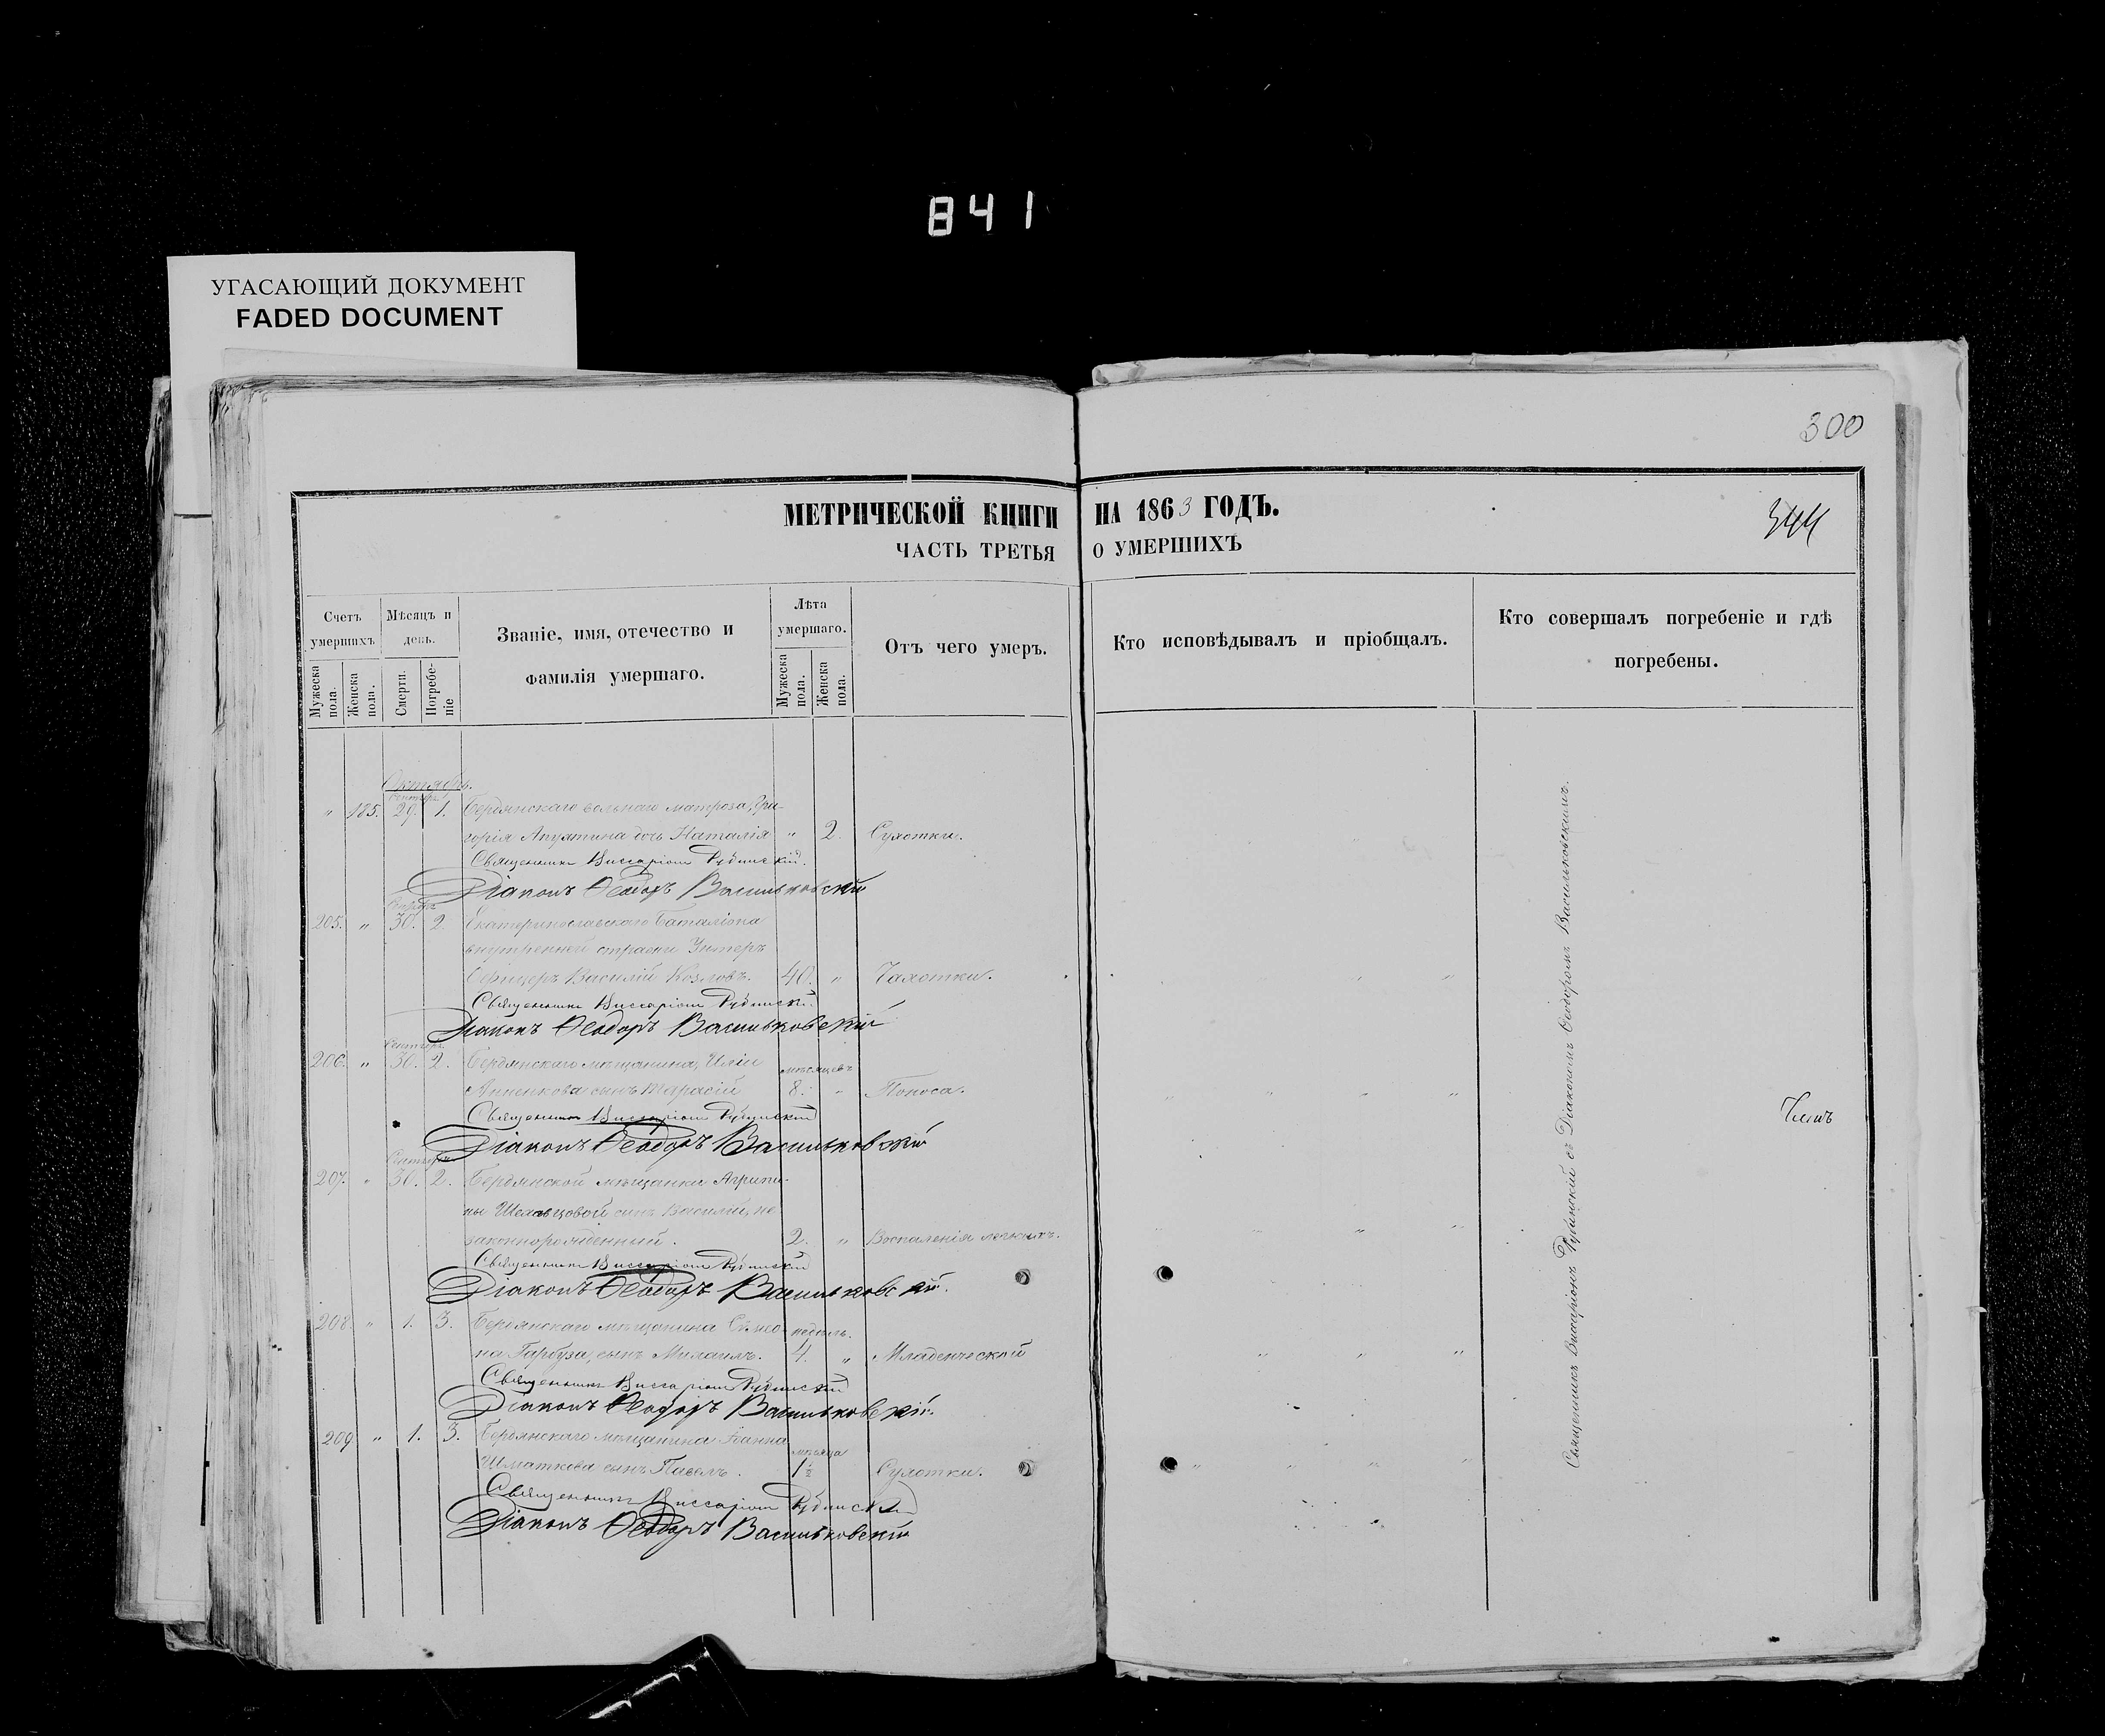 841
УГАСАЮЩИЙ ДОКУМЕНТ
FADED DOCUMENT
300
МЕТРИЧЕСКОЙ КНИГИ НА 1863 ГОДЪ.
344
ЧАСТЬ ТРЕТЬЯ О УМЕРШИХЪ
Счетъ умершихъ
Мужеска пола.
Женска пола.
Мѣсяцъ и день.
Смерти.
Погребеніе
Званіе, имя, отечество и фамилія умершаго.
Лѣта умершаго.
Мужеска пола.
Женска пола.
Отъ чего умеръ.
Кто исповѣдывалъ и пріобщалъ.
Кто совершалъ погребеніе и гдѣ погребены.
Октябрь.
Сентябр.
" 185. 29. 1. Бердянскаго вольнаго матроза, Гри-
горія Апухтина дочь Наталія " 2. Сухотки.
Священникъ Виссаріонъ Рубинскій.
Діаконъ Ѳеодоръ Васильковскій
205. " 30. 2. Екатеринославскаго Баталіона
внутренней стражи Унтеръ
Офицеръ Василій Козловъ. 40. " Чахотки.
Священникъ Виссаріонъ Рубинскій.
Діаконъ Ѳеодоръ Васильковскій
Сентябр.
206. " 30. 2. Бердянскаго мѣщанина, Иліи мѣсяцевъ
Анненкова сынъ Тарасій 8. " Поноса.
Священникъ Виссаріонъ Рубинскій
Діаконъ Ѳеодоръ Васильковскій
Сентябр.
207. " 30. 2. Бердянской мѣщанки Агрипи-
ны Шеховцовой сынъ Василій, не
законнорожденный. 2. " Воспаленія легкихъ.
Священникъ Виссаріонъ Рубинскій
Діаконъ Ѳеодоръ Васильковскій.
208. " 1. 3. Бердянскаго мѣщанина Симео- недѣль.
на Гарбуза, сынъ Михаилъ. 4. " Младенческой
Священникъ Виссаріонъ Рубинскій
Діаконъ Ѳеодоръ Васильковскій.
209 " 1. 3. Бердянскаго мѣщанина Іоанна мѣсяца
Шматкова сынъ Павелъ. 1½ Сухотки.
Священникъ Виссаріонъ Рубинскій
Діаконъ Ѳеодоръ Васильковскій
Священникъ Виссаріонъ Рубинскій съ Діакономъ Ѳеодоромъ Васильковскимъ.